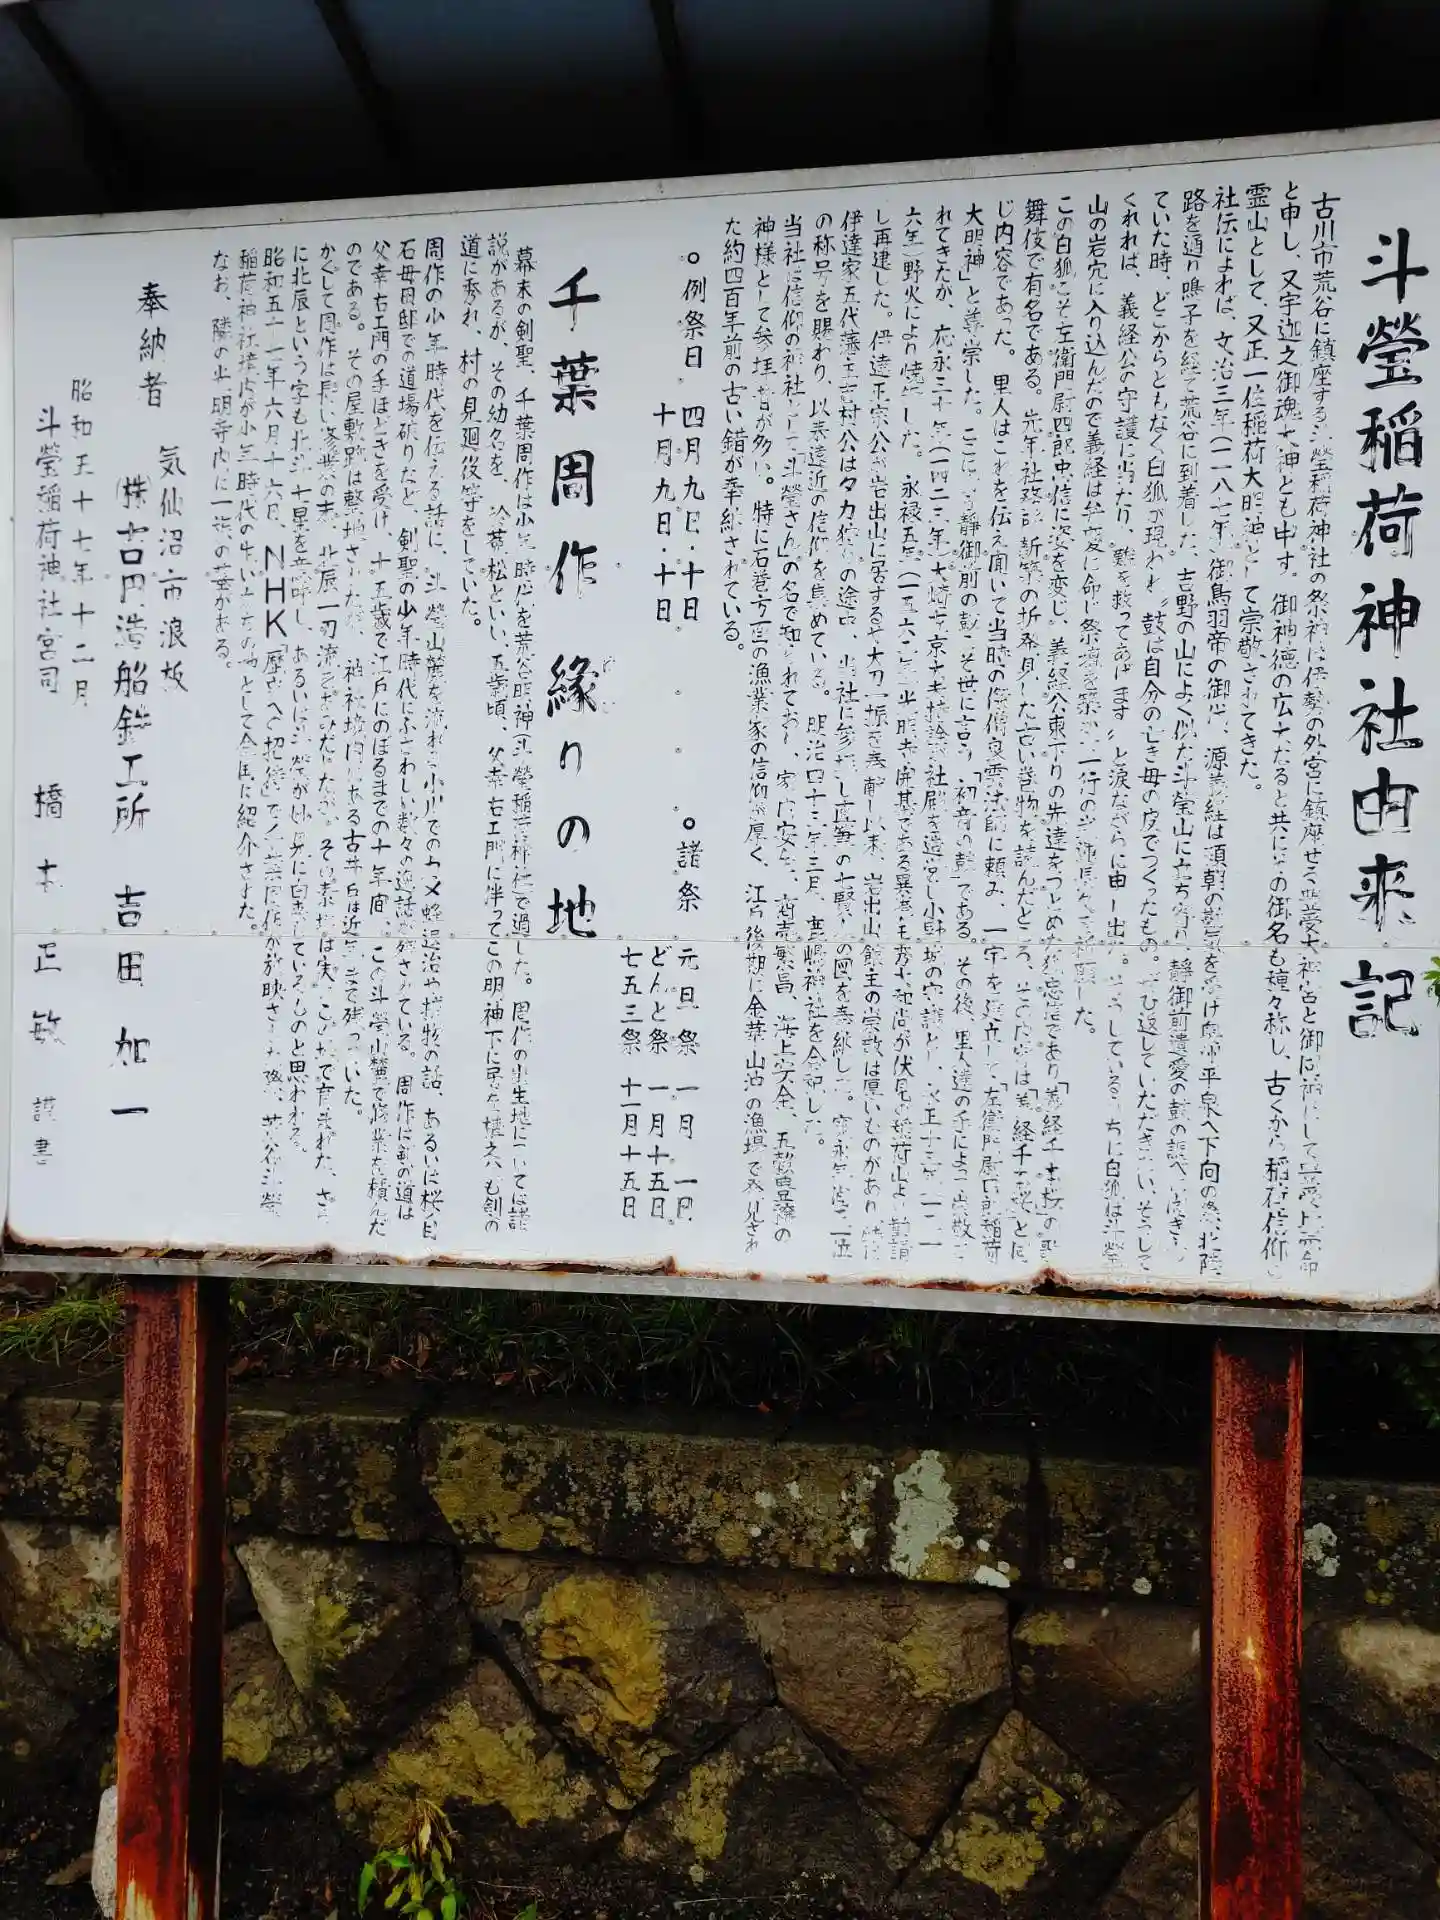 斗螢稲荷神社由来記
古川市荒谷に鎮座する斗螢稲荷神社の祭神は伊勢の外宮に鎮座せる豊受大神宮と御同神にして豊受上宗命
と申し、又宇迦之御魂大神とも申す。御神徳の広大なると共にその御名も種々称し、古くから稲荷信仰の
霊山として、又正一位稲荷大明神として崇敬されてきた。
社伝によれば、文治三年(一一八七年)御鳥羽帝の御代、源義経は頼朝の勘気を受け奥州平泉へ下向の際、北陸
路を通り鳴子を経て荒谷に到着した。吉野の山によく似た斗螢山に立ち寄り、静御前遺愛の鼓の調べ
ていた時、どこからともなく白狐が現われ〝鼓は自分の亡き母の皮でつくったもの。ぜひ返していただきたい、そうして
くれれば、義経公の守護に当たり、難を救ってあげます〟と涙ながらに申し出た。そうしているうちに白狐は斗螢
山の岩穴に入り込んだので義経は弁慶に命じ祭壇を築かせ一行の武運長久を祈願した。
この白狐こそ左衛門尉四郎忠信に姿を変じ、義経公東下りの先達をつとめた狐忠信であり「義経千本桜」の歌
舞伎で有名である。先年社務所新築の折発見した古い巻物を読んだところ、その内容は「義経千本桜」と同
じ内容であった。里人はこれを伝え聞いて当時の高僧良雲法師に頼み、一宇を建立して「左衛門尉四郎稲荷
大明神」と尊崇した。ここに静御前の鼓こそ世に言う「初音の鼓」である。その後、里人達の手によって崇敬さ
れてきたが、応永三十年(一四二三年)大崎左京大夫持詮が社殿を造営し小野城の守護とし、永正十三年(一
六年)野火により焼失した。永禄五年(一五六二年)光明寺開基である異港毛秀大和尚が伏見の稲荷山より勧請
し再建した。伊達正宗公が岩出山に居するや大刀一振を奉献し以来、岩出山館主の崇敬は厚いものがあり
伊達家五代藩主吉村公はタカ狩りの途中、当社に参拝し直筆の十賢人の図を奉納した。
の称号を賜わり、以来遠近の信仰を集めている。明治四十三年三月、鹿嶋神社を合祀した。
当社は信仰の神社として「斗螢さん」の名で知られており、家内安全、商売繁昌、海上安全、五穀豊穣の
神様として参拝者が多い。特に石巻方面の漁業家の信仰が厚く、江戸後期に金華山沖の漁場で発見され
た約四百年前の古い錨が奉納されている。
○例祭日　四月九日・十日
十月九日・十日
○諸祭　元旦祭　一月一日
どんと祭　一月十五日
七五三祭　十一月十五日
千葉周作縁りの地
幕末の剣聖、千葉周作は小年時代を荒谷明神(斗螢稲荷神社)で過した。周作の出生地については諸
説があるが、その幼名を於菟松といい、五歳頃、父幸右エ門に伴ってこの明神下に居を構え父も剣の
道に秀れ、村の見廻役等をしていた。
周作の少年時代を伝える話に、斗螢山麓を流れる小川での大蛇退治や怪物の話、あるいは桜ノ目
石母田邸での道場破りなど、剣聖の少年時代にふさわしい数々の逸話が残されている。周作に剣の道は
父幸右エ門の手ほどきを受け、十五歳で江戸にのぼるまでの十年間、この斗螢山麓で修業を積んだ
のである。その屋敷跡は整地されたが、神社境内にある古井戸は近年まで残っていた。
かくして周作は長い修業の末、北辰一刀流をあみだしたが、その素地は実にこの地で育まれた、さら
に北辰という字も北斗七星を意味し、あるいは斗螢が妙見に由来しているものと思われる。
昭和五十一年六月十六日、NHK「歴史への招待」で千葉周作が放映された際、荒谷斗螢
稲荷神社境内が小年時代の生い立ちの地として全国に紹介された。
なお、隣の光明寺内に一族の墓がある。
奉納者　気仙沼市浪板
(株)吉田造船鉄工所　吉田加一
昭和五十七年十二月
斗螢稲荷神社宮司　橋本正敏　謹書